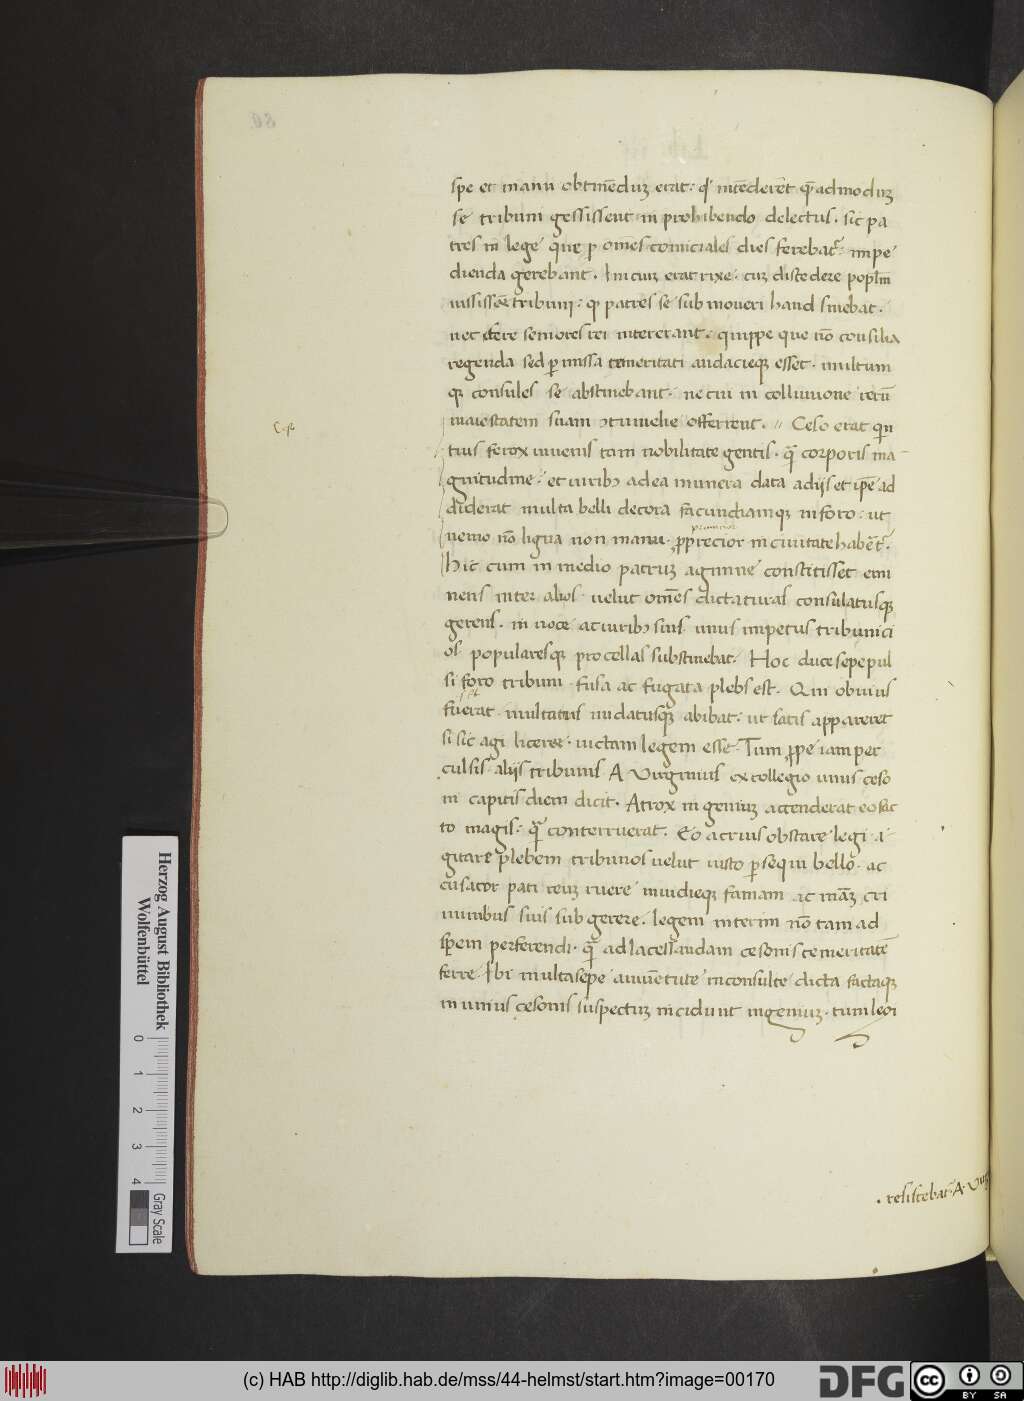 spe et manu obtinēduʒ erat: qđ intēderēt qēadmoduʒ
se tribuni gessissent in prohibendo delectus. sic pa
tres in lege que p omēs comiciales dies ferebat͛: impe
dienda gerebant. Inicuʒ erat rixe. cuʒ discedere poplm̄
iussissēt tribuni: qꝫ patres se submoveri haud sinebat.
nec fere seniores rei intererant. quippe que nō consilia
regenda sed ꝑmissa temeritati audacieqꝫ esset. multum
qꝫ consules se abstinebant. ne cui in colluuione rerū
maiestatem suam ɔtumelie offerrent. // Ceso erat qin
tius ferox iuuenis tam nobilitate gentis. qā corporis ma
gnitudine. et uiribꝫ ad ea munera data a dijs et ipē ad
diderat multa belli decora facundiamqꝫ in foro: ut
nemo nō ligua non manu. prōprecior in ciuitate habēt͛.
Hic cum in medio patruʒ agmine constitisset emi
nens inter alios. uelut omēs dictaturas consulatusqꝫ
gerens. in uoce ac uiribꝫ suis unus impetus tribunici
os popularesqꝫ procellas substinebat. Hoc duce sepe pul
si foro tribuni fusa ac fugata plebs est. Qui obuius
fuerat. multatus nudatusqꝫ abibat: ut satis appareret
si sic agi liceret. uictam legem esse. Tum ꝓpe iam per
culsis alijs tribunis A Virginius ex collegio unus ceso
ni capitis diem dicit. Atrox ingeniuʒ accenderat eo fac
to magis: qā conterruerat. Eo acrius obstare legi. a
gitare plebem tribunos uelut iusto ꝑsequi bello. ac
cusator pati reuʒ ruere inuidieqꝫ famam ac māʒ cri
minibus suis subgerere. legem interim nō tam ad
spem perferendi. qā ad lacessandam cesonis temeritatē
ferre Ibi multa sepe a iuuētute inconsulte dicta factaqꝫ
in unius cesonis suspectuʒ incidunt ingeniuʒ. tum legi
. resistebat. A. Virg
Herzog August Bibliothek
Wolfenbüttel
0 1 2 3 4
Gray Scale
(c) HAB http://diglib.hab.de/mss/44-helmst/start.htm?image=00170
DFG
cc BY SA